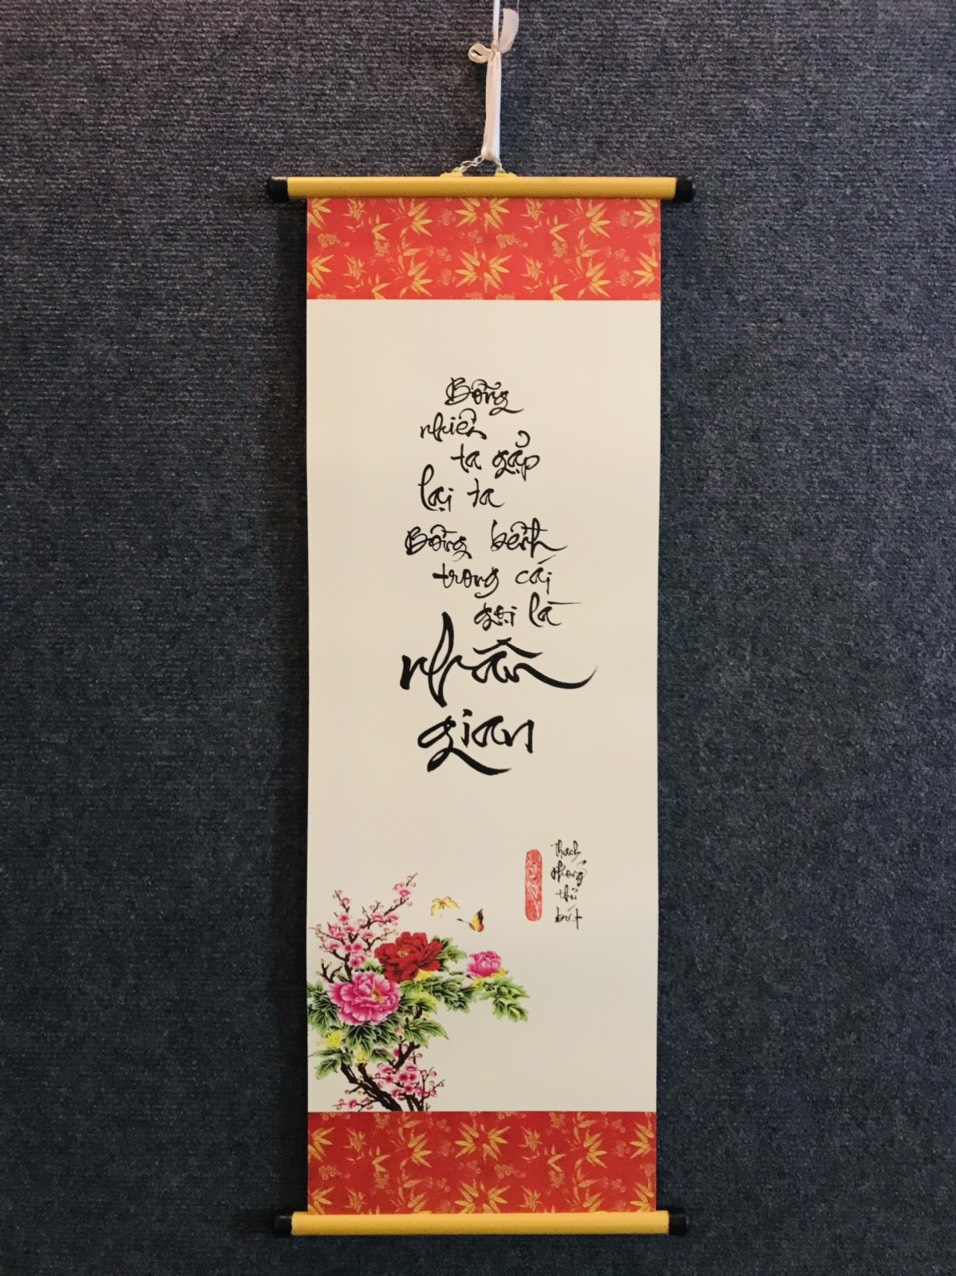 Bỗng
nhiên
ta gặp
lại ta
Bồng bềnh
trong cái
gọi là
nhân
gian
Thạch
Phong
thủ
bút